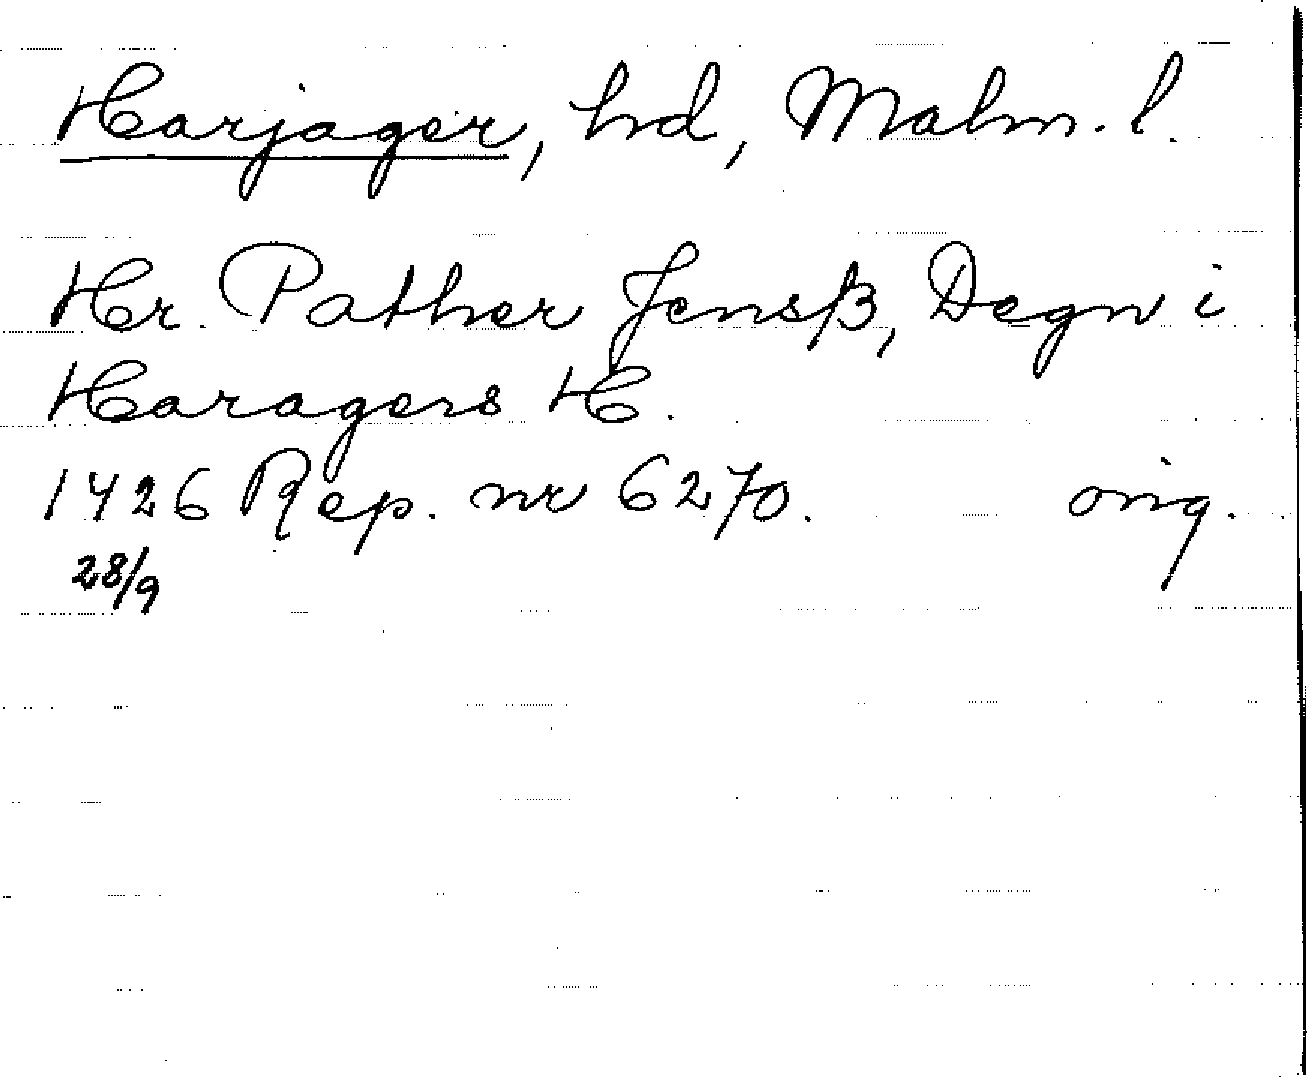 Harjager, hd, Malm. l.
Hr. Pather Jensß, Degn i
Haragers H.
1426 Rep. nr 6270. orig.
28/9